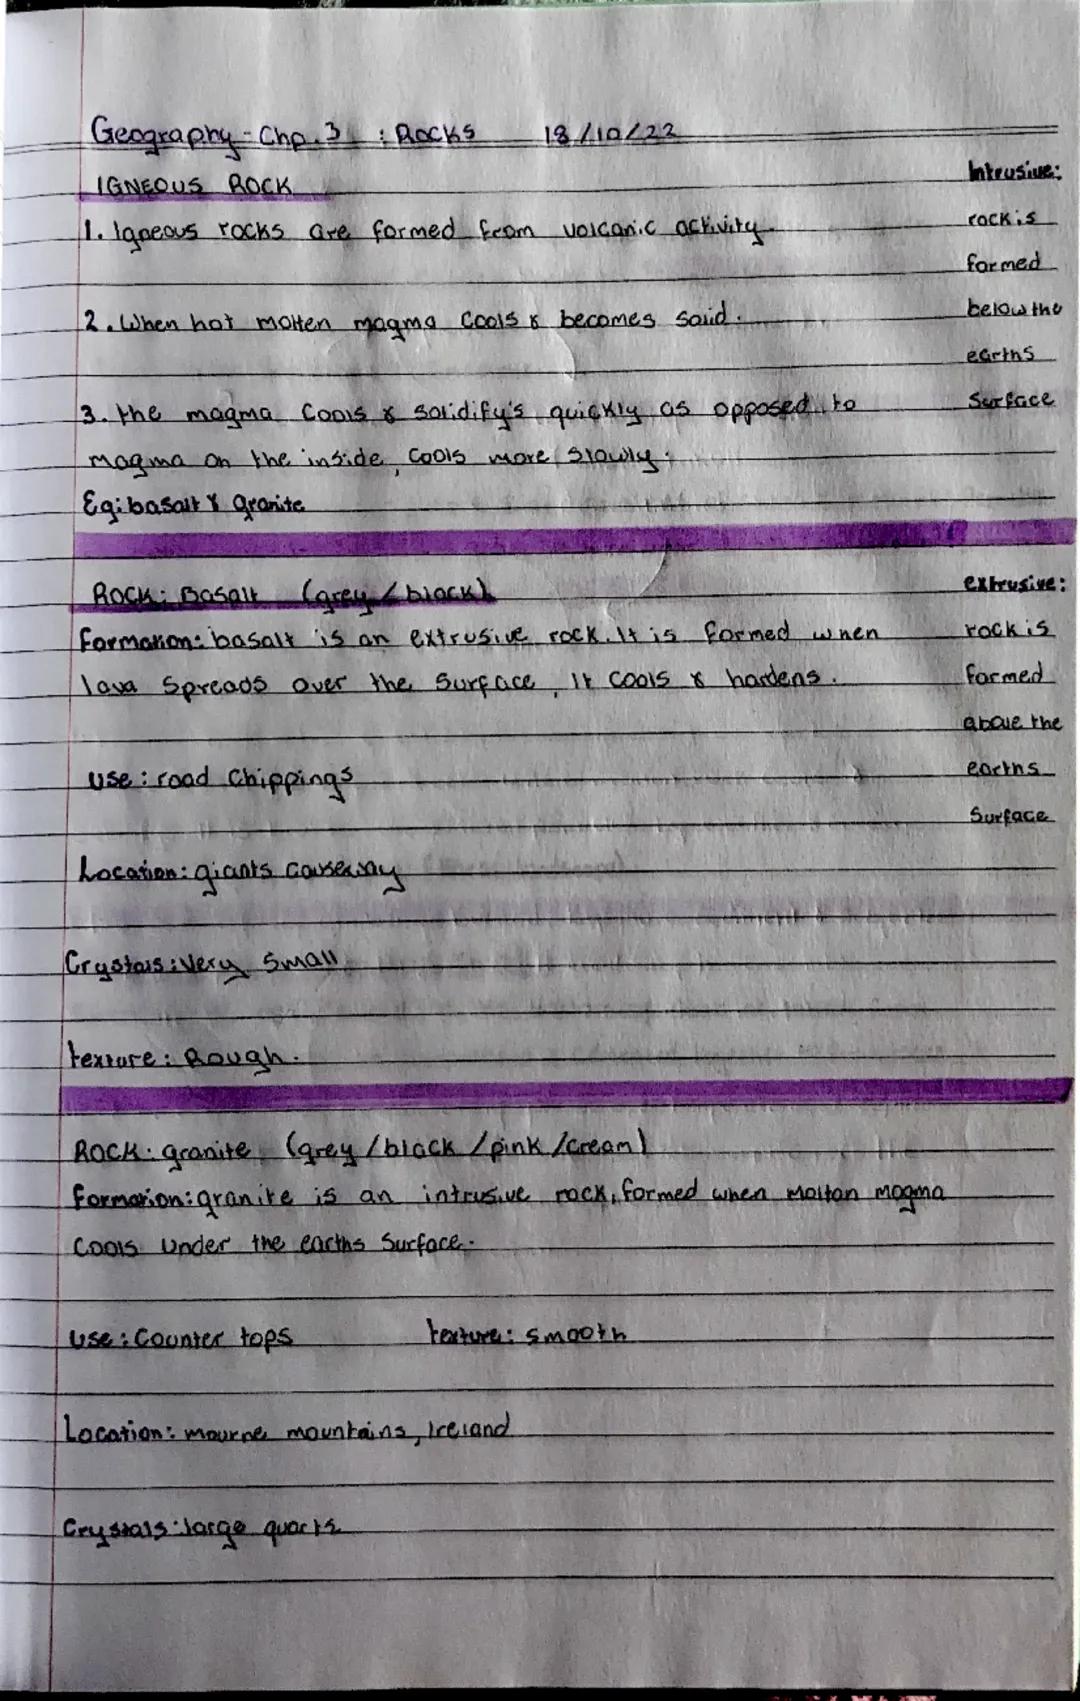 Geography - Chp. 3 : Rocks 18/10/22
IGNEOUS ROCK
1. Igneous rocks are formed from volcanic activity.
2. When hot molten magma cools & becomes solid.
3. the magma cools & solidify's quickly as opposed to
magma on the inside, cools more slowly.
Eg: basalt & granite
Intrusive:
rock is
formed
below the
earths
surface
Rock: Basalt (grey / black)
formation: basalt is an extrusive rock. It is formed when
lava spreads over the surface, it cools & hardens.
use: road chippings
Location: giants causeway
Crystals: very small
texture: Rough.
extrusive:
rock is
formed
above the
earths
surface
Rock: granite (grey / black / pink / cream)
formation: granite is an intrusive rock, formed when moltan magma
cools under the earths surface.
use: counter tops texture: smooth
Location: mourne mountains, Ireland
Crystals: large quarts